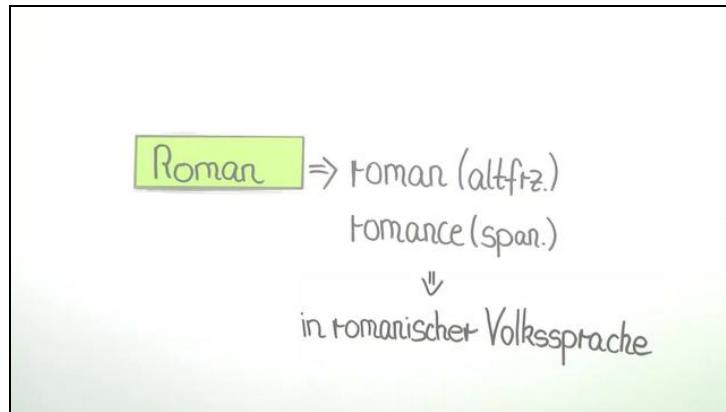 Roman ⇒ roman (altfrz.)
romance (span.)
⇓
in romanischer Volkssprache